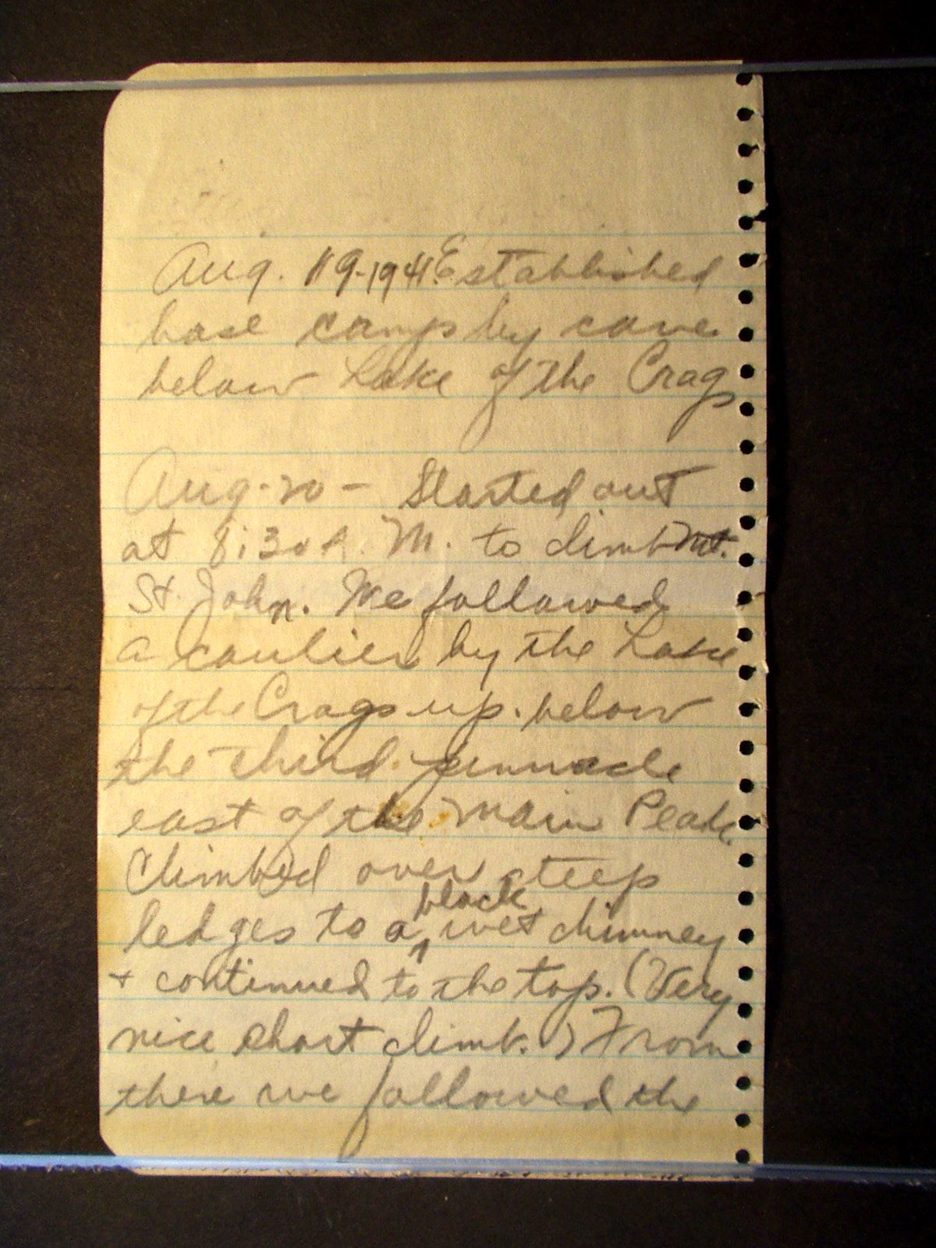 Aug. 19-1941. Established
base camp by cave
below Lake of the Crags
Aug-20- Started out
at 8:30 A. M. to climb Mt.
St. John. We followed
a coulier by the Lake
of the Crags up below
the third pinnacle
east of the Main Peak.
Climbed over steep
ledges to a black wet chimney
+ continued to the top. (Very
nice short climb.) From
there we followed the